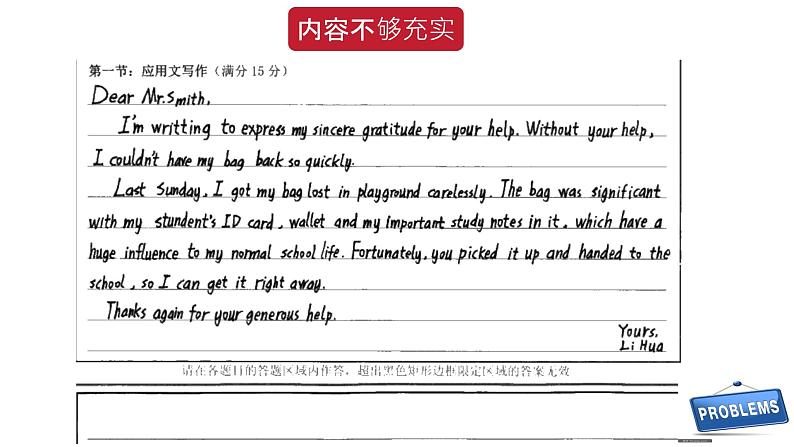 内容不够充实
第一节：应用文写作（满分 15 分）
Dear Mr.Smith,
I'm writting to express my sincere gratitude for your help. Without your help,
I couldn't have my bag back so quickly.
Last Sunday, I got my bag lost in playground carelessly. The bag was significant
with my stundent's ID card, wallet and my important study notes in it, which have a
huge influence to my normal school life. Fortunately, you picked it up and handed to the
school, so I can get it right away.
Thanks again for your generous help.
Yours,
Li Hua
请在各题目的答题区域内作答，超出黑色矩形边框限定区域的答案无效
PROBLEMS